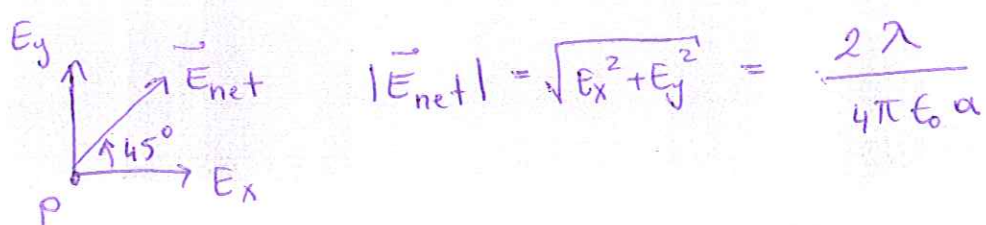 E_y
\vec{E}_{net}
45°
E_x
P
|\vec{E}_{net}| = \sqrt{E_x^2 + E_y^2} = \frac{2 λ}{4 π ε_0 a}